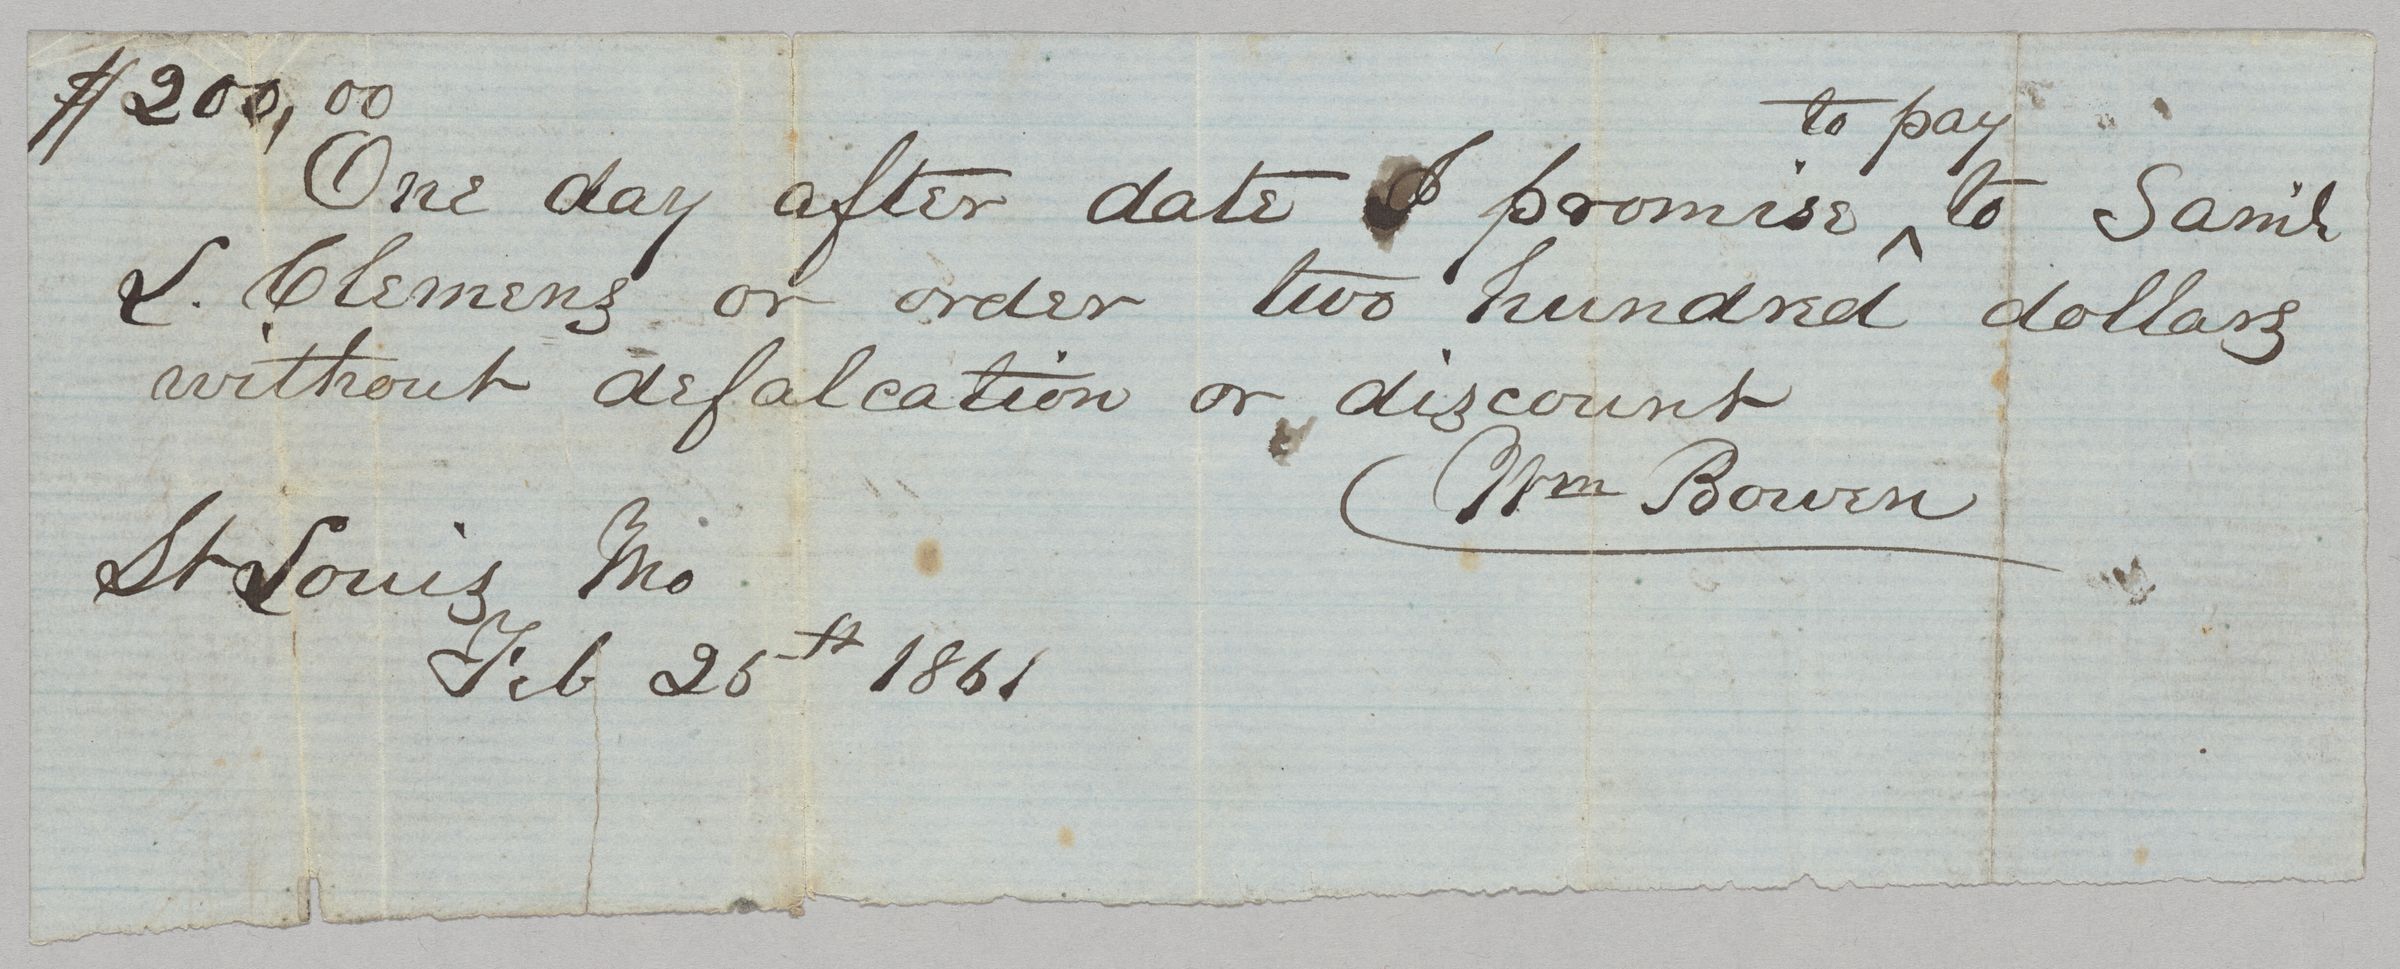 $200,00
One day after date I promise ^to pay^ to Sam'l
L. Clemens or order two hundred dollars
without defalcation or discount
Wm Bowen
St Louis Mo
Feb 25th 1861